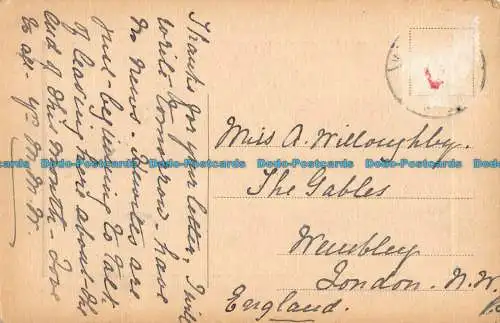 Thanks for your letter. I will
write tomorrow. have
no news. Huntes are
just beginning to talk
of leaving here about the
end of this month - Love
to all. yrs M. M. W.
Miss A. Willoughby.
The Gables
Wembley
London. N.W.
England.
Dodo-Postcards Dodo-Postcards Dodo-Postcards Dodo-Postcards Dodo-Postcards Dodo-Postcards